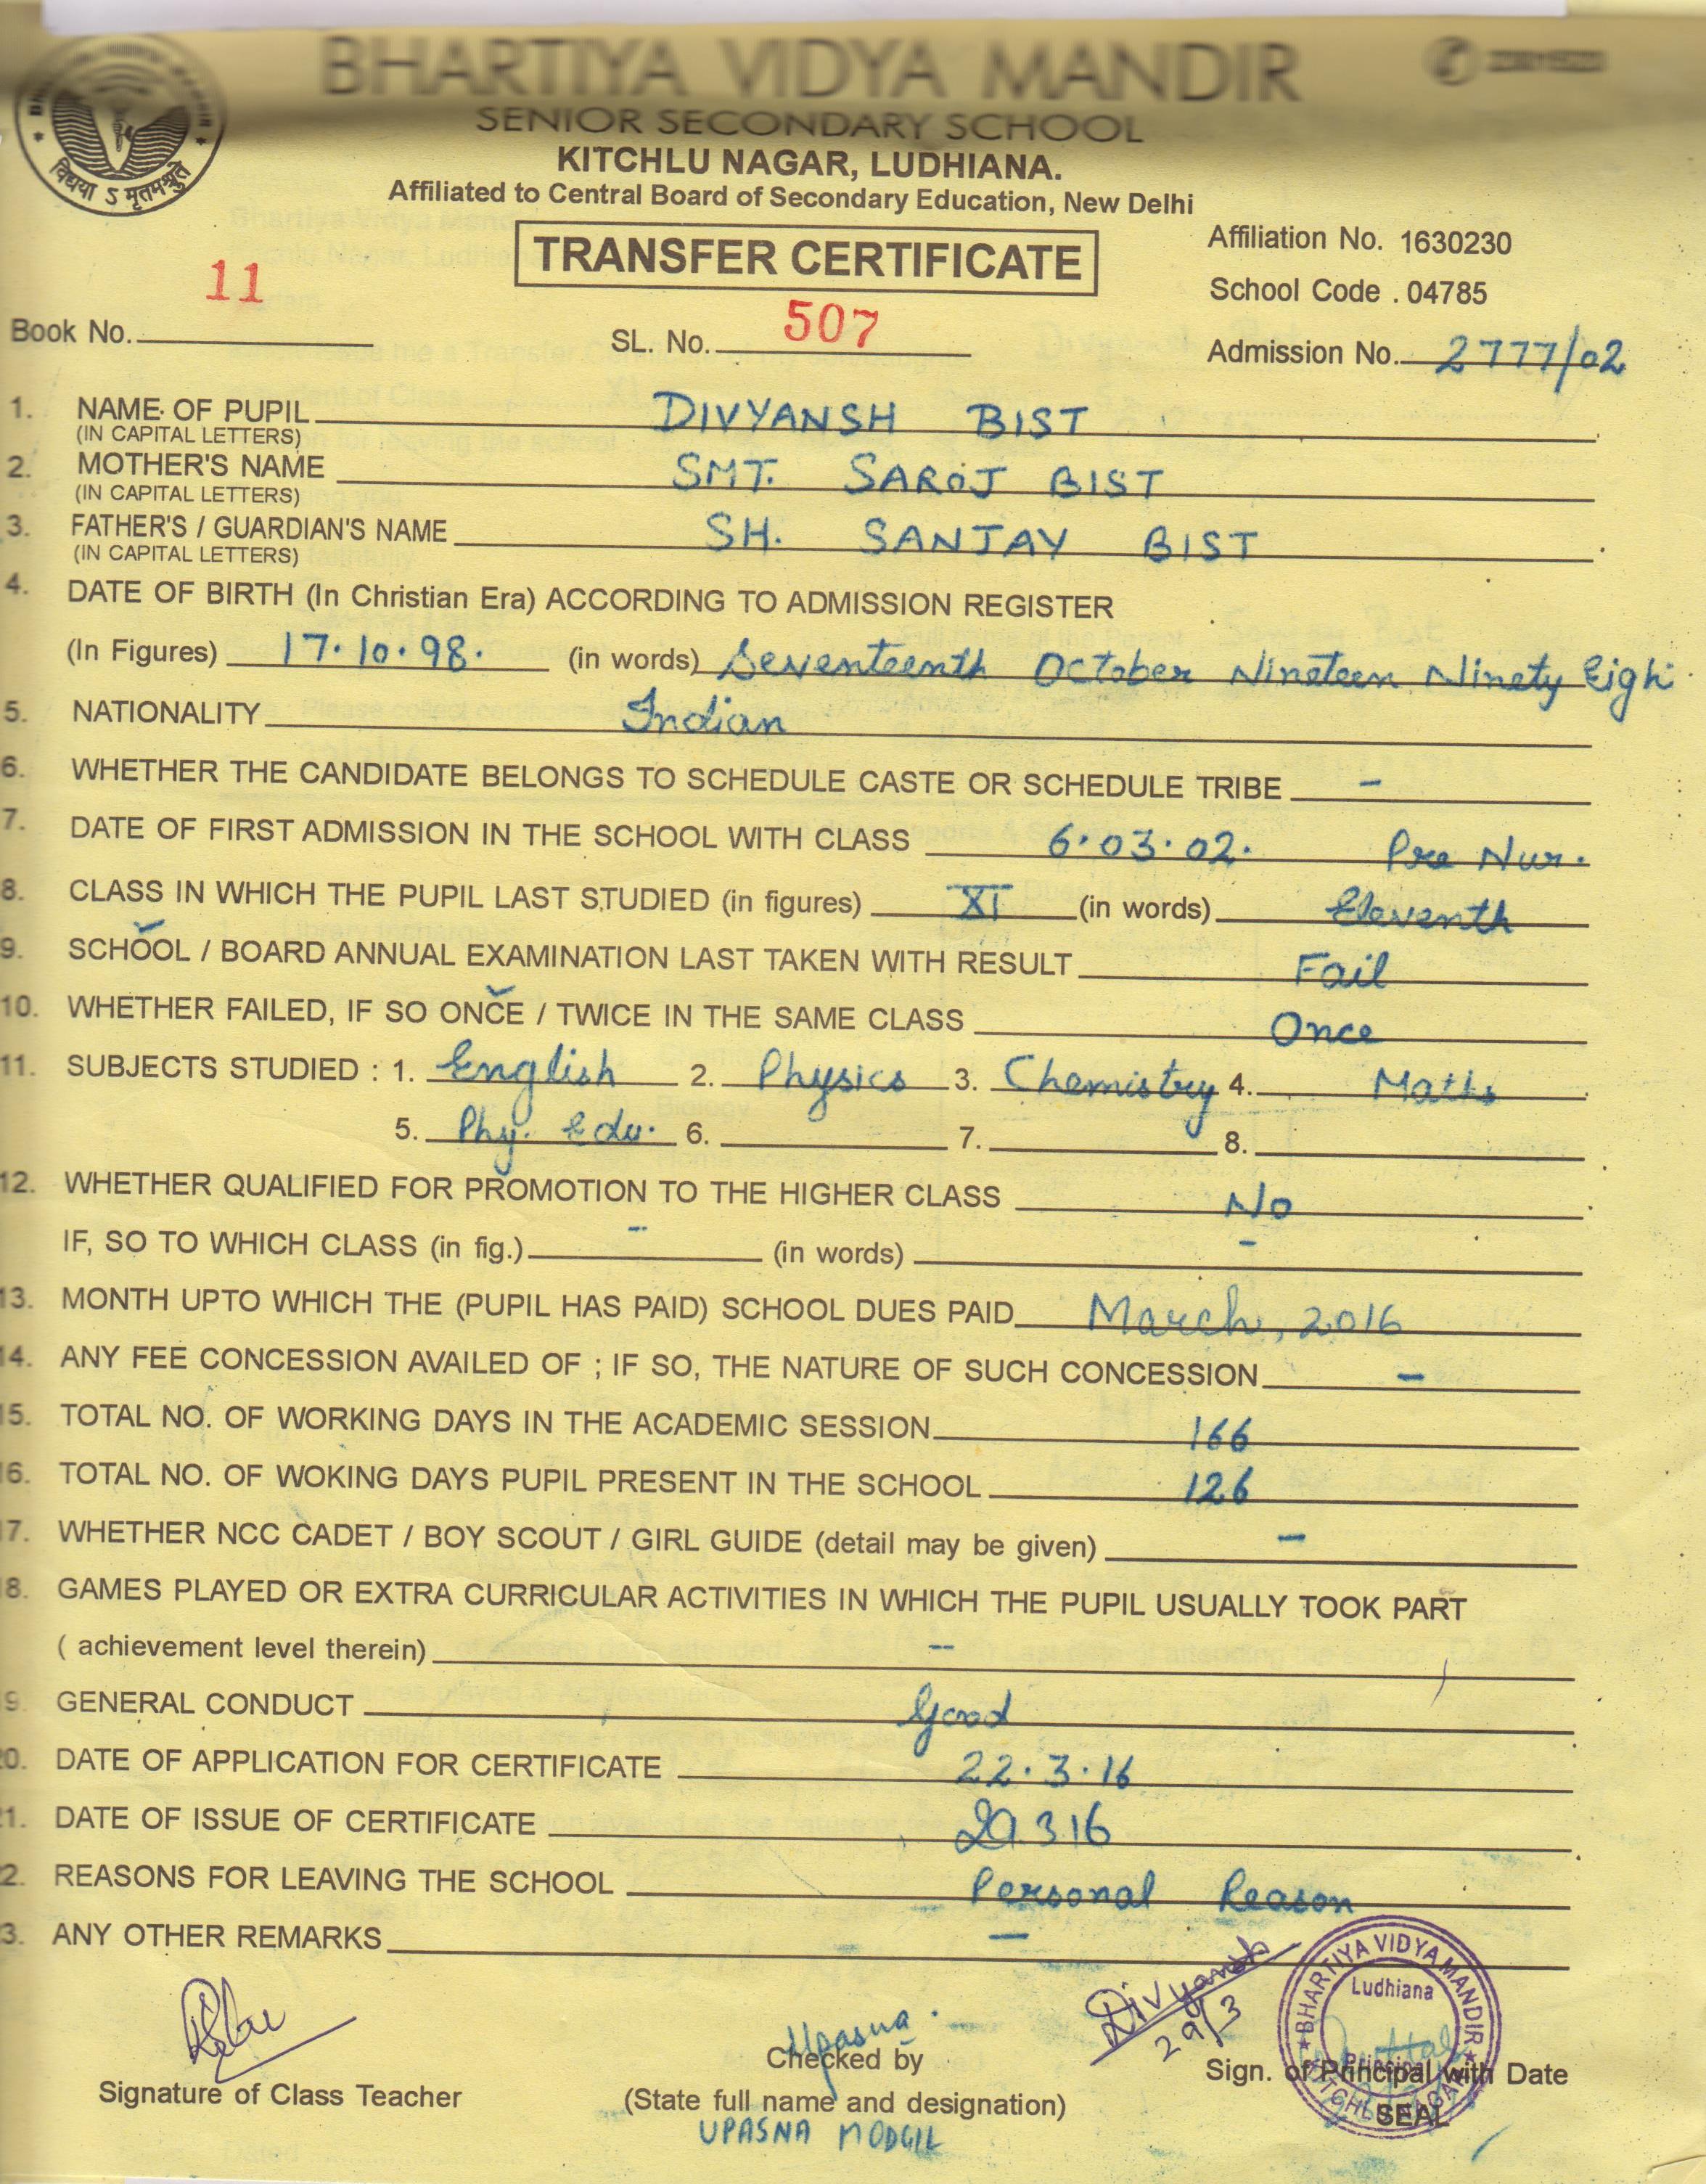 BHARTIYA VIDYA MANDIR
SENIOR SECONDARY SCHOOL
KITCHLU NAGAR, LUDHIANA.
Affiliated to Central Board of Secondary Education, New Delhi
विद्यया ऽ मृतमश्नुते
TRANSFER CERTIFICATE
Affiliation No. 1630230
School Code . 04785
Book No. 11 SL. No. 507 Admission No. 2777/02
1. NAME OF PUPIL DIVYANSH BIST
(IN CAPITAL LETTERS)
2. MOTHER'S NAME SMT. SAROJ BIST
(IN CAPITAL LETTERS)
3. FATHER'S / GUARDIAN'S NAME SH. SANJAY BIST
(IN CAPITAL LETTERS)
4. DATE OF BIRTH (In Christian Era) ACCORDING TO ADMISSION REGISTER
(In Figures) 17.10.98. (in words) Seventeenth October Nineteen Ninety Eigh
5. NATIONALITY Indian
6. WHETHER THE CANDIDATE BELONGS TO SCHEDULE CASTE OR SCHEDULE TRIBE -
7. DATE OF FIRST ADMISSION IN THE SCHOOL WITH CLASS 6.03.02. Pre Nur.
8. CLASS IN WHICH THE PUPIL LAST STUDIED (in figures) XI (in words) Eleventh
9. SCHOOL / BOARD ANNUAL EXAMINATION LAST TAKEN WITH RESULT Fail
10. WHETHER FAILED, IF SO ONCE / TWICE IN THE SAME CLASS Once
11. SUBJECTS STUDIED : 1. English 2. Physics 3. Chemistry 4. Maths
5. Phy. Edu. 6. 7. 8.
12. WHETHER QUALIFIED FOR PROMOTION TO THE HIGHER CLASS No
IF, SO TO WHICH CLASS (in fig.) - (in words) -
13. MONTH UPTO WHICH THE (PUPIL HAS PAID) SCHOOL DUES PAID March, 2016
14. ANY FEE CONCESSION AVAILED OF ; IF SO, THE NATURE OF SUCH CONCESSION -
15. TOTAL NO. OF WORKING DAYS IN THE ACADEMIC SESSION 166
16. TOTAL NO. OF WOKING DAYS PUPIL PRESENT IN THE SCHOOL 126
17. WHETHER NCC CADET / BOY SCOUT / GIRL GUIDE (detail may be given) -
18. GAMES PLAYED OR EXTRA CURRICULAR ACTIVITIES IN WHICH THE PUPIL USUALLY TOOK PART
( achievement level therein) --
9. GENERAL CONDUCT Good
20. DATE OF APPLICATION FOR CERTIFICATE 22.3.16
21. DATE OF ISSUE OF CERTIFICATE 29.3.16
2. REASONS FOR LEAVING THE SCHOOL Personal Reason
3. ANY OTHER REMARKS -
Divyansh
29/3
BHARTIYA VIDYA MANDIR
Ludhiana
Principal
Upasna
Checked by
Sign. of Principal with Date
Signature of Class Teacher
(State full name and designation)
SEAL
UPASNA MODGIL